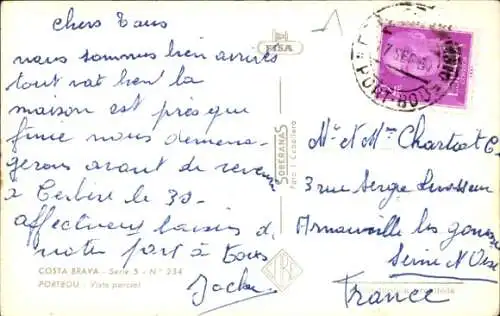 Chers Tous
nous sommes bien arrivés
tout vat bien la
maison est presque
finie nous demena-
gerons avant de revenir
à Cerbère le 30
affectueux baisers de
notre part à tous
Jackie
COSTA BRAVA - Serie 5 - N° 234
PORTBOU - Vista parcial
FISA
SOBERANAS
Foto: Caballero
PORT-BOU
Mr et Mme Chartrat C.
3 rue Serge
Arnouville les gonesse
Seine N Oise
France